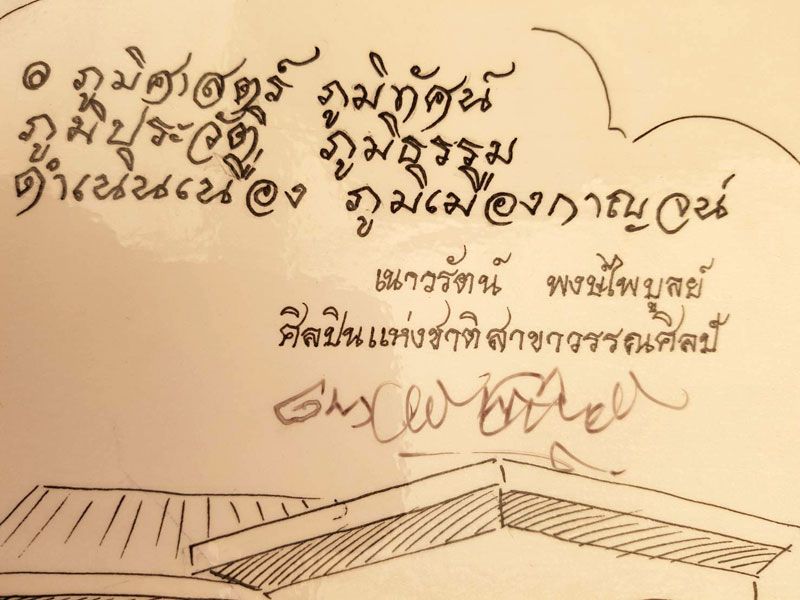 ๏ ภูมิศาสตร์ ภูมิทัศน์
ภูมิประวัติ ภูมิธรรม
ดำเนินเนื่อง ภูมิเมืองกาญจน์
เนาวรัตน์ พงษ์ไพบูลย์
ศิลปินแห่งชาติสาขาวรรณศิลป์